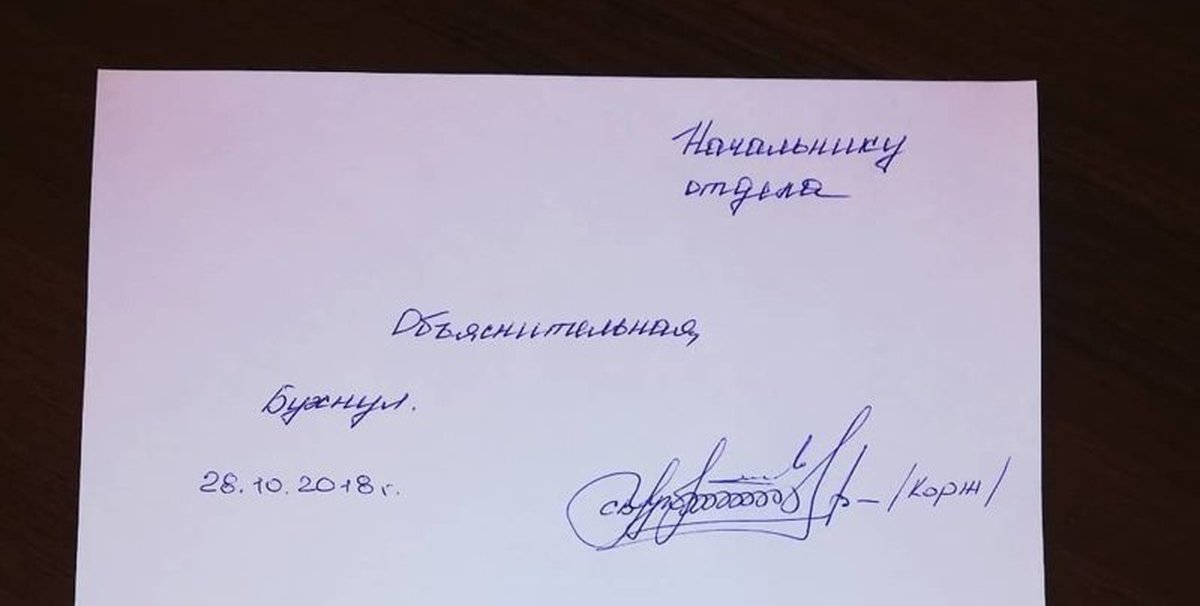 Начальнику
отдела
Объяснительная
Бухнул.
28.10.2018 г.
/Корж/